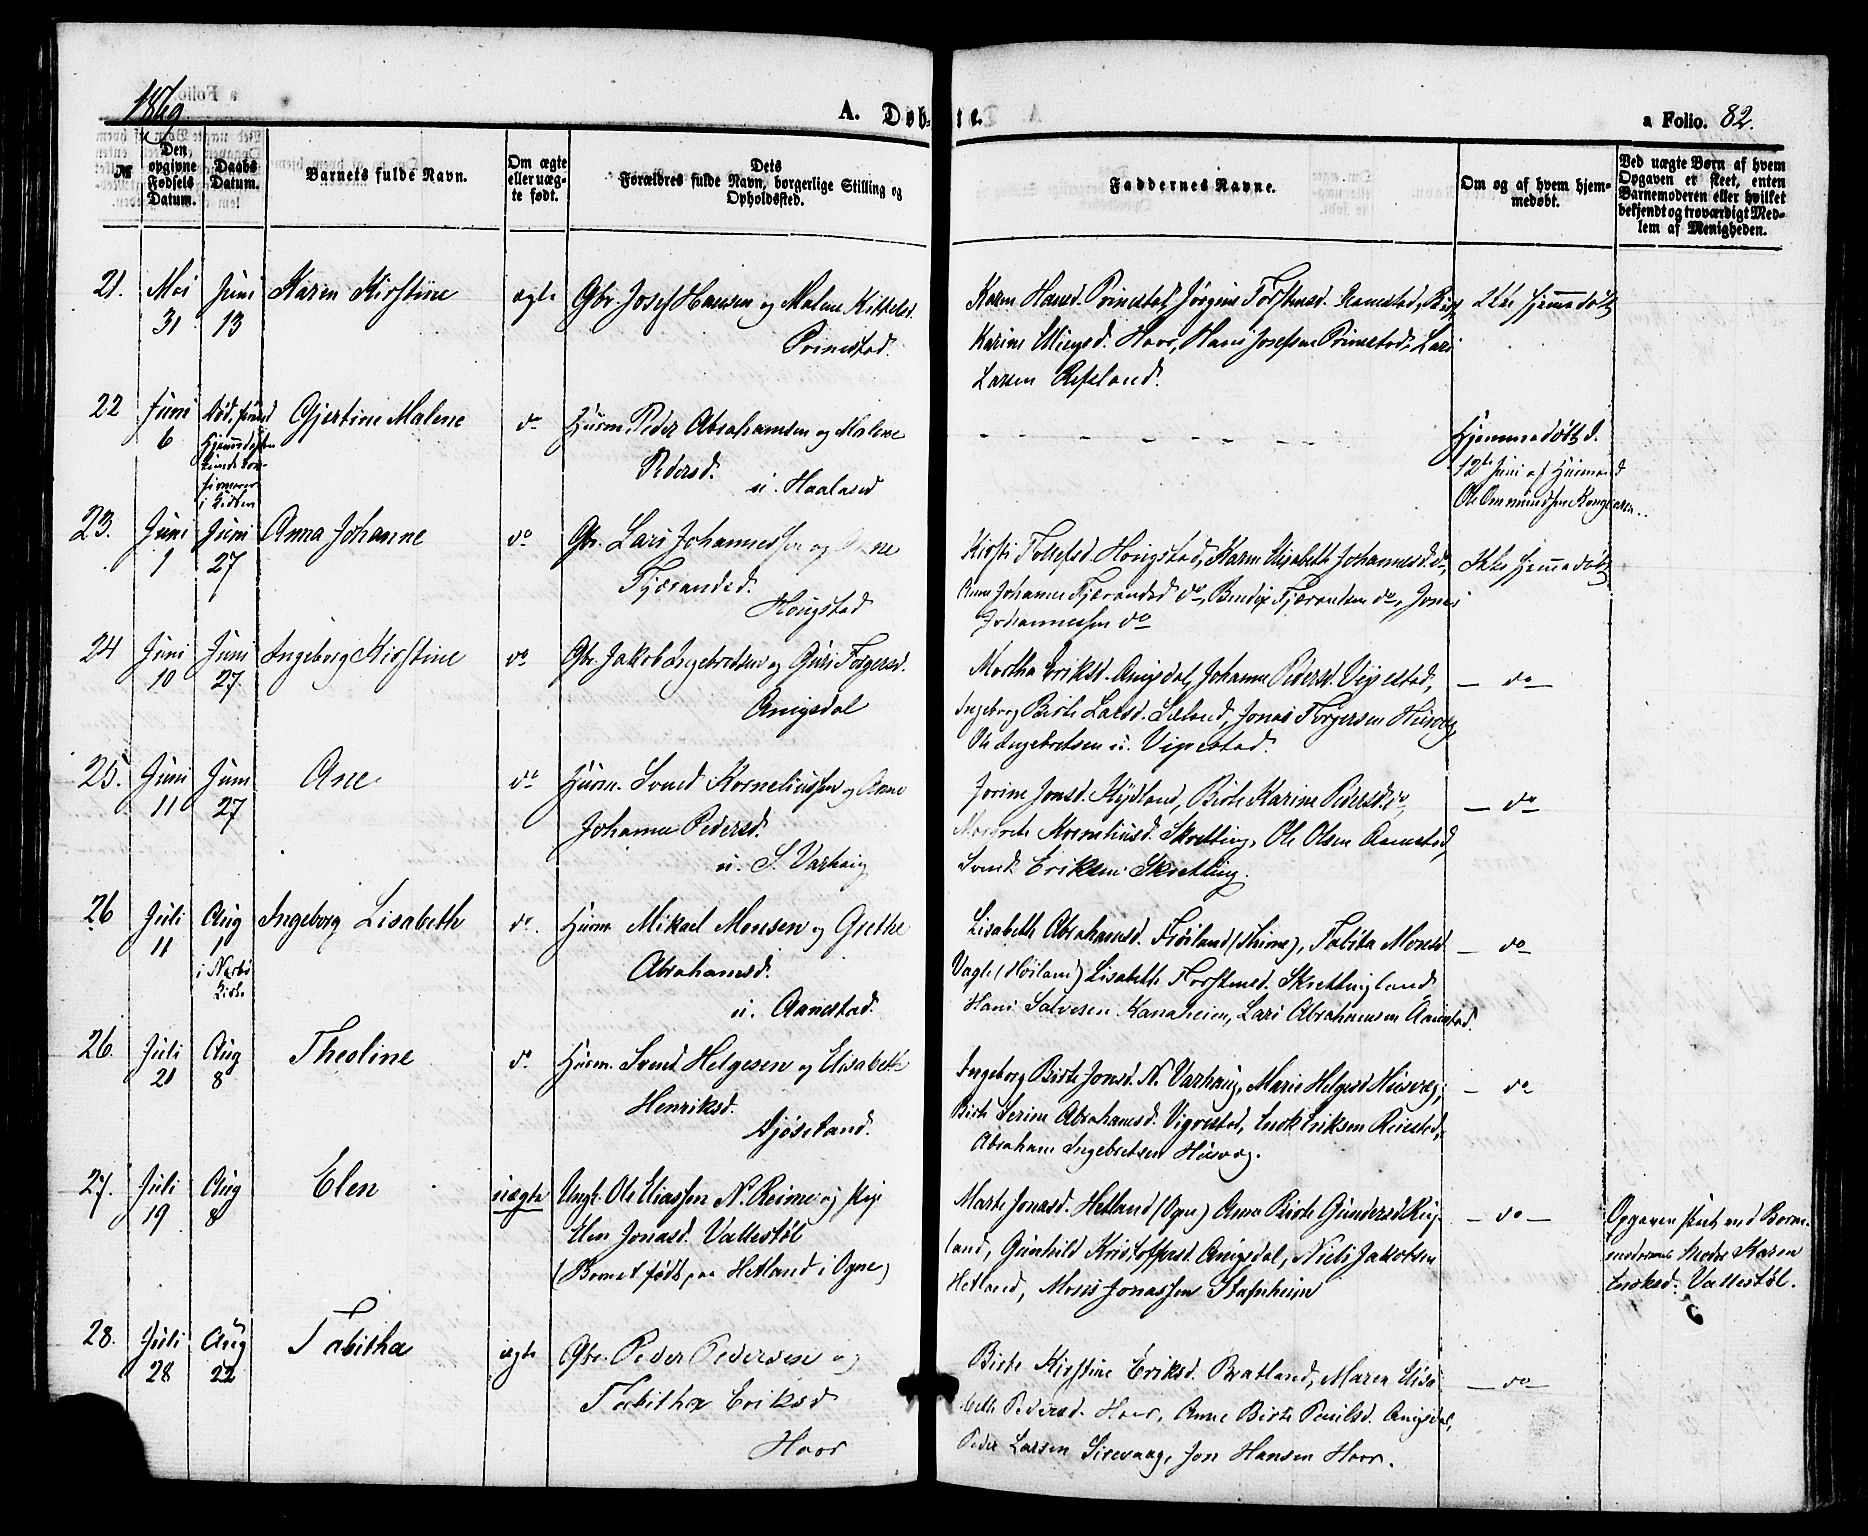 1869.
A. Døb-
te.
a Folio. 82.
№
Den opgivne Fødsels Datum.
Daabs Datum.
Barnets fulde Navn.
Om ægte eller uægte født.
Dets
Forældres fulde Navn, borgerlige Stilling og
Opholdssted.
Faddernes Navne.
Om og af hvem hjem-
medøbt.
Ved uægte Børn af hvem
Opgaven er skeet, enten
Barnemoderen eller hvilket
bekjendt og troværdigt Med-
lem af Menigheden.
21. Mai 31 Juni 13 Karen Kirstine ægte Gbr. Josef Hansen og Malene Kittelsd.
Primstad.
Karen Hansd. Primstad, Jørgine Torstensd.
Karine Hoor, Hans Josefsen Primstad, Lars
Larsen Refsland.
Ikke hjemmedøbt
22 Juni 6 Død, Gjertine Malene do Huusm. Peder Abrahamsen og Malene
Pedersd.
u. Haaland
Hjemmedøbt d.
12te Juni af Huusmand
Ole Ommundsen
23. Juni 1 Juni 27 Anna Johanne do Gbr. Lars Johannessen og Anne
Tjærandsd.
Hougstad
Kirsti Tollefsd. Hougstad, Karen Elisabeth Johannesd. do,
Anne Johanne Tjærandsd do, Bendix Tjærandsen do, Jonas
Johannessen do
Ikke hjemmedøbt
24 Juni 10 Juni 27. Ingeborg Kirstine do Gbr. Jakob Ingebretsen og Guri Torgersd.
Anigsdal
Martha Eriksd. Anigsdal, Johanne Pedersd. Vigestad,
Ingeborg Birte Larsd. Sæland, Jonas Torgersen Husveg,
Ole Ingebretsen u. Vigestad.
— do —
25. Juni 11 Juni 27 Ane do Huusm. Svend Korneliussen og Anne
Johanne Pedersd.
u. S. Varhaug
Jorine Jonsd. Kydland, Birte Karine Pedersd. do,
Korneliusd. Skretting, Ole Olsen Aanestad,
Svend Eriksen Skretting.
— do
26 Juli 11 Aug 1 i Nærbø Kirke Ingeborg Lisabeth do. Huusm. Mikael Monsen og Grethe
Abrahamsd.
u. Aanestad.
Lisabeth Abrahamsd. Frøiland (Thime), Tabita Monsd.
Vagle (Høiland) Lisabeth Torstensd. Skrettingland
Hans Salvesen Kanaheien, Lars Abrahamsen Aanestad.
— do
26. Juli 21 Aug 8 Theoline do. Huusm. Svend Helgesen og Elisabeth
Henriksd.
Njøseland.
Ingeborg Birte Jonsd. N. Varhaug, Marie Helgesd Husveg,
Birte Serine Abrahamsd. Vigrestad, Enok Eriksen Reiestad,
Abraham Ingebretsen Husveg.
— do
27. Juli 19 Aug 8 Elen uægte Ungk. Ole Eliassen N. Reime og Pige
Elen Jonasd. Vallestøl
(Barnet født paa Hetland i Ogne)
Marte Jonasd. Hetland (Ogne) Anna Birte Gundersd Rug-
land, Gunhild Kristoffersd. Anigsdal, Niels Jakobsen
Hetland, Moses Jonassen Stafnheim
— do —
Opgaven skeet ved Barne-
moderens Moder Karen
Enoksd. Vallestøl.
28. Juli 28 Aug 22 Tabitha ægte Gbr. Peder Pedersen og
Tabitha Eriksd
Hoor
Birte Kirstine Eriksd. Bratland, Maren Elisa-
beth Pedersd. Hoor, Anne Birte Poulsd. Anigsdal,
Peder Larsen Sirevaag, Jon Hansen Hoor.
— do —